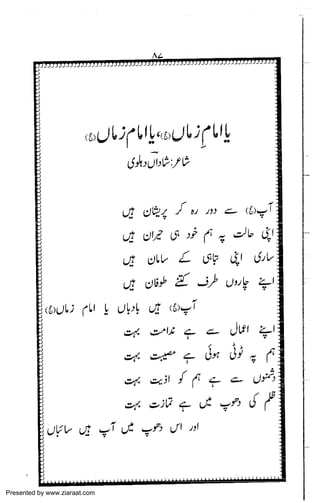 ۸۷
یا امامِ زماں(ع)، یا امام زماں(ع)
شاعر: شاداںؔ دہلوی
آپ(ع) سے دور رہ کر پریشان ہیں
اپنی حالت پہ ہم خود ہی حیران ہیں
ساری اپنی تباہی کے سامان ہیں
اپنے چاروں طرف کتنے طوفان ہیں
آپ(ع) ہیں بادباں یا امام زماں(ع)
اپنے اعمال سے ہے ندامت بہت
ہم پہ ٹوٹی ہوئی ہے مصیبت بہت
دشمنوں سے ہے ہم کو اذیت بہت
ظلم کی دھوپ میں ہے تمازت بہت
اور اس دھوپ میں آپ ہیں سائباں
Presented by www.ziaraat.com